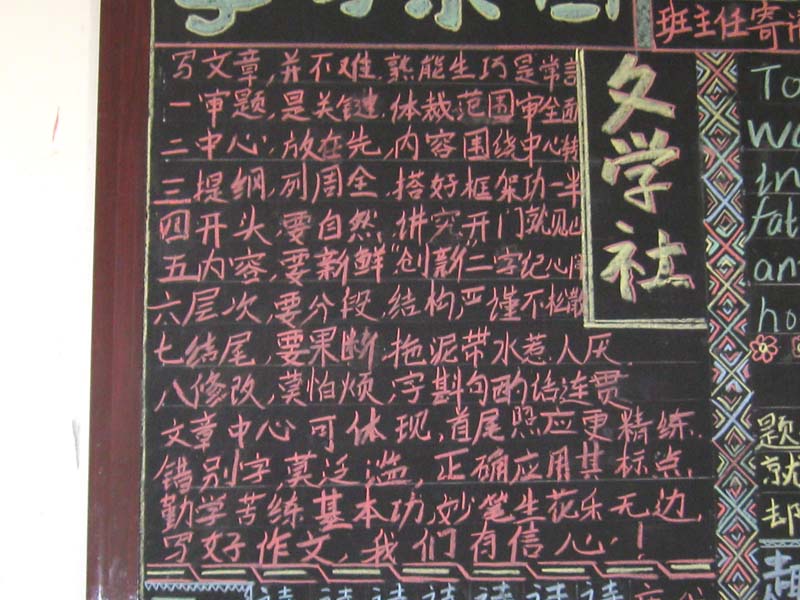 班主任寄
写文章,并不难.熟能生巧是常言
一审题,是关键.体裁范围审全面
二中心.放在先,内容围绕中心转
三提纲,列周全.搭好框架功一半
四开头.要自然.讲究开门就见山
五内容,要新鲜"创新"二字纪心间
六层次,要分段,结构,严谨不松散
七结尾,要果断.拖泥带水惹.人厌.
八修改,莫怕烦,字斟句酌语连贯
文章中心可体现,首尾照应更精练.
错别字莫泛滥,正确应用其标点.
勤学苦练基本功,妙笔生花乐无边.
写好作文,我们有信心.!
文学社
To
in
fat
an
ho
题
就
却
趣
诗诗诗诗诗诗